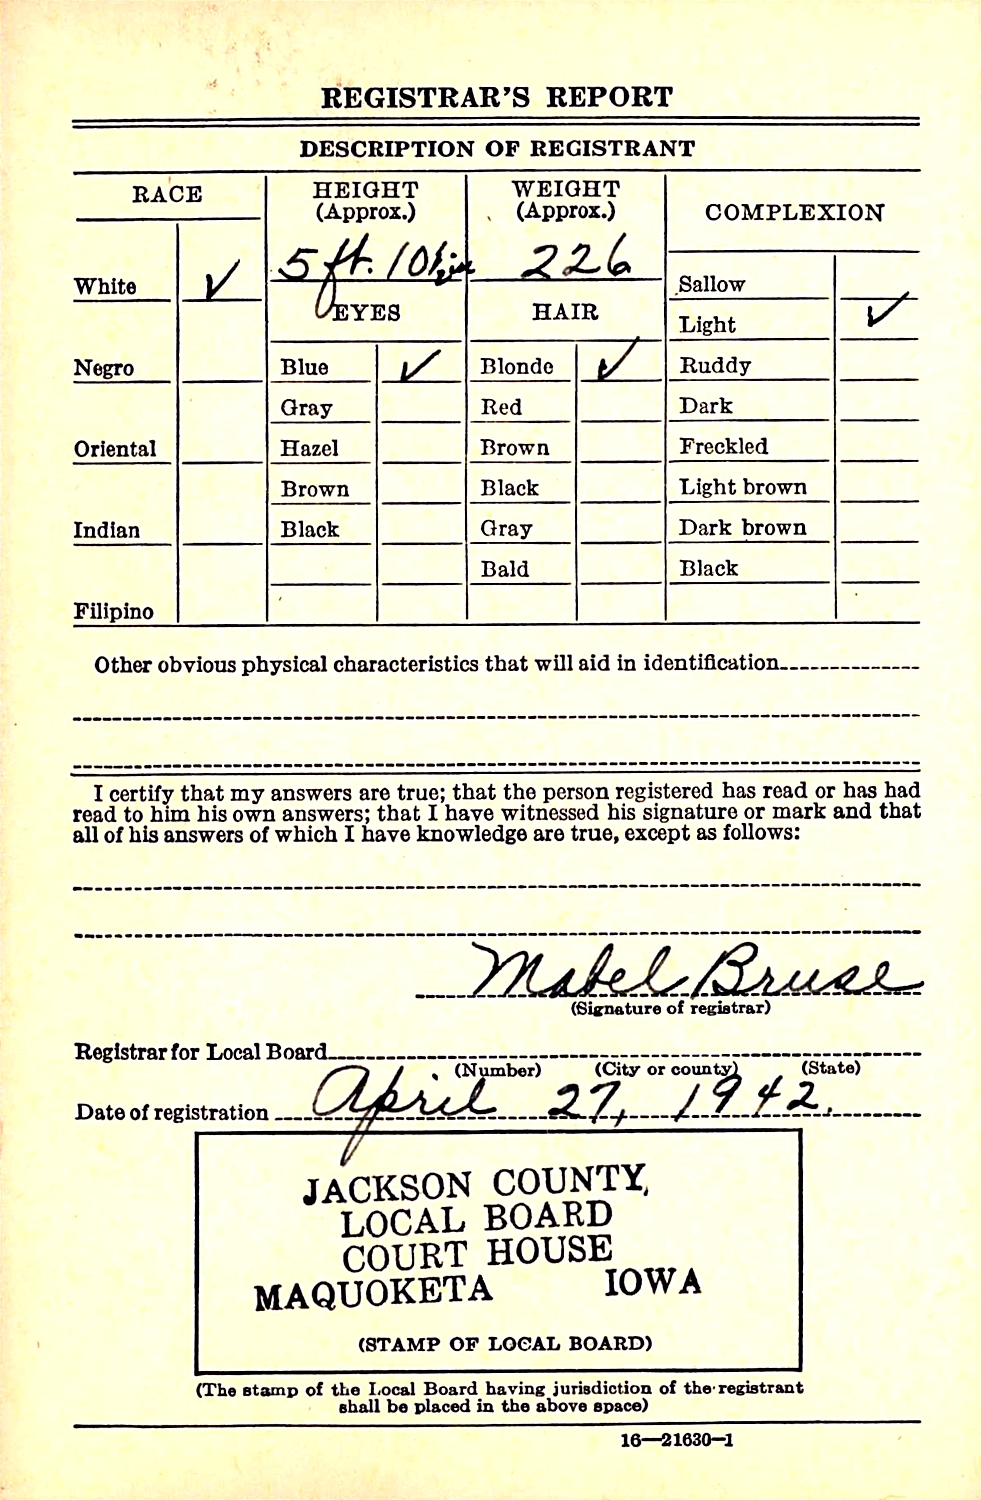 REGISTRAR'S REPORT
DESCRIPTION OF REGISTRANT
RACE
HEIGHT
(Approx.)
WEIGHT
(Approx.)
COMPLEXION
5 ft. 10½ in
226
White ✓
EYES
HAIR
Sallow
Light ✓
Negro
Blue ✓
Blonde ✓
Ruddy
Gray
Red
Dark
Oriental
Hazel
Brown
Freckled
Brown
Black
Light brown
Indian
Black
Gray
Dark brown
Bald
Black
Filipino
Other obvious physical characteristics that will aid in identification
I certify that my answers are true; that the person registered has read or has had
read to him his own answers; that I have witnessed his signature or mark and that
all of his answers of which I have knowledge are true, except as follows:
Mabel Bruse
(Signature of registrar)
Registrar for Local Board
(Number) (City or county) (State)
Date of registration April 27, 1942.
JACKSON COUNTY,
LOCAL BOARD
COURT HOUSE
MAQUOKETA IOWA
(STAMP OF LOCAL BOARD)
(The stamp of the Local Board having jurisdiction of the registrant
shall be placed in the above space)
16—21630-1